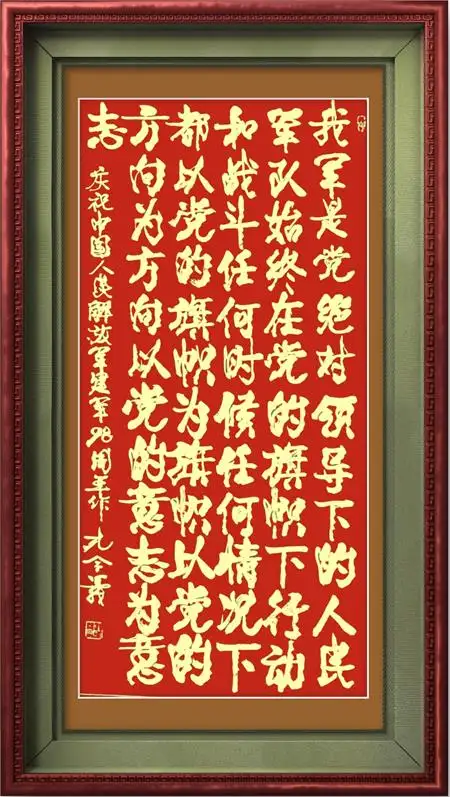 我军是党绝对领导下的人民
军队始终在党的旗帜下行动
和战斗任何时候任何情况下
都以党的旗帜为旗帜以党的
方向为方向以党的意志为意
志
庆祝中国人民解放军建军98周年作